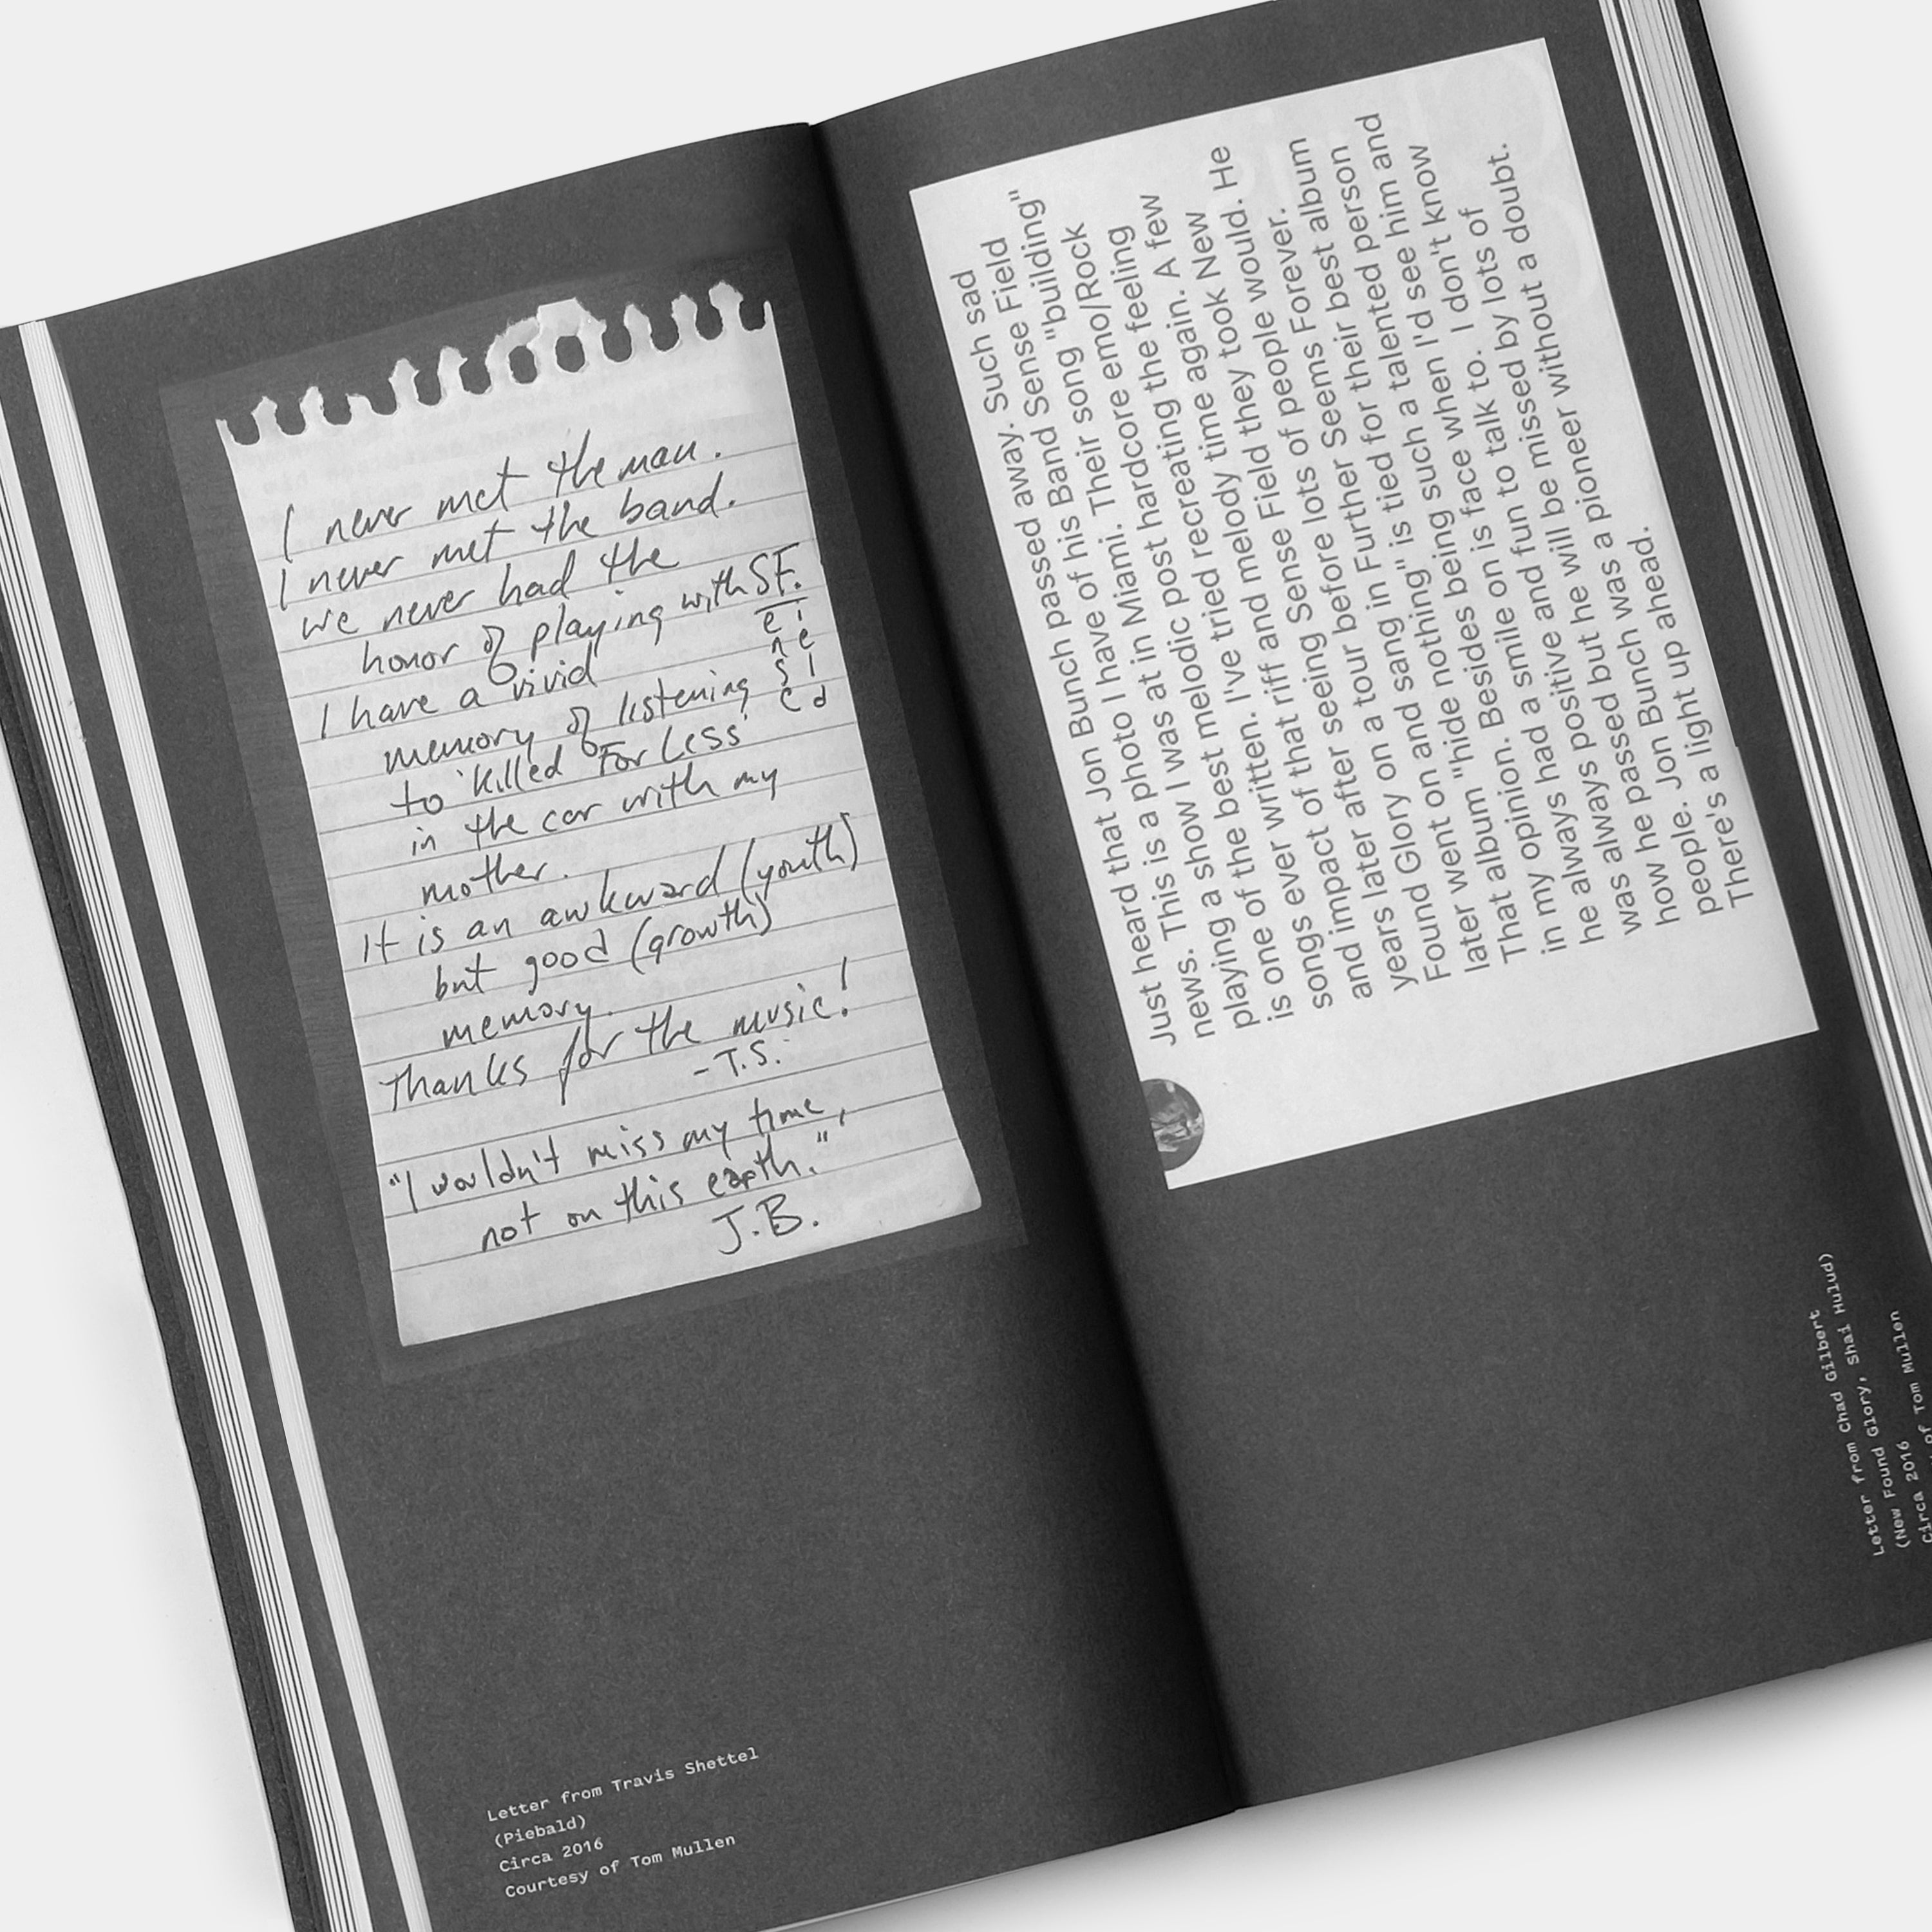 I never met the man.
I never met the band.
We never had the
honor of playing with SF.
e i
n e
s l
e d
I have a vivid
memory of listening
to 'Killed For Less'
in the car with my
mother.
It is an awkward (youth)
but good (growth)
memory.
Thanks for the music!
- T.S.
"I wouldn't miss my time,
not on this earth."
J.B.
Letter from Travis Shettel
(Piebald)
Circa 2016
Courtesy of Tom Mullen
Just heard that Jon Bunch passed away. Such sad
news. This is a photo I have of his Band Sense Field
playing a show I was at in Miami. Their song "building"
is one of the best melodic post hardcore emo/Rock
songs ever written. I've tried recreating the feeling
and impact of that riff and melody time again. A few
years later after seeing Sense Field they took New
Found Glory on a tour before lots of people would. He
later went on and sang in Further Seems Forever.
That album "hide nothing" is tied for their best album
in my opinion. Besides being such a talented person
he always had a smile on is face when I'd see him and
was always positive and fun to talk to. I don't know
how he passed but he will be missed by lots of
people. Jon Bunch was a pioneer without a doubt.
There's a light up ahead.
Letter from Chad Gilbert
(New Found Glory, Shai Hulud)
Circa 2016
of Tom Mullen